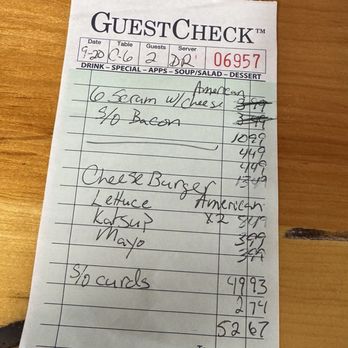 GUESTCHECK™
Date Table Guests Server
9-20 C-6 2 DR 06957
DRINK – SPECIAL – APPS – SOUP/SALAD – DESSERT
American
6 Scram w/cheese 3 99
S/O Bacon 3 99
10 99
4 49
4 49
Cheese Burger 13 49
Lettuce American
Katsup x2 5 49
Mayo 3 99
3 99
S/O curds 49 93
2 74
52 67